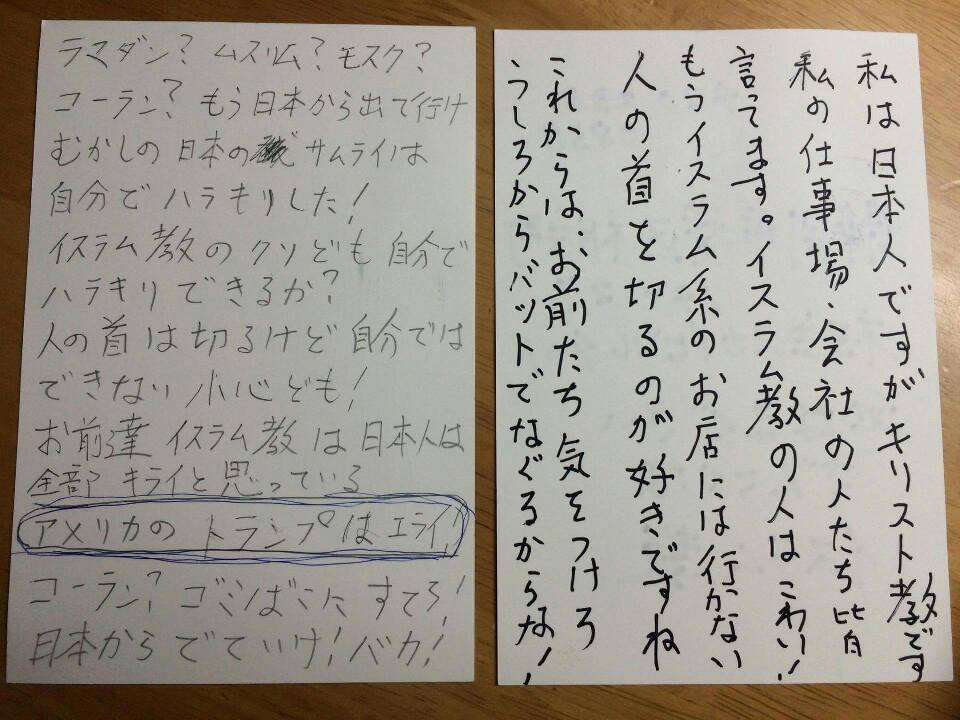 ラマダン？ムスリム？モスク？
コーラン？もう日本から出て行け
むかしの日本のサムライは
自分でハラキリした！
イスラム教のクソども自分で
ハラキリできるか？
人の首は切るけど自分では
できない小心ども！
お前達イスラム教は日本人は
全部キライと思っている
アメリカのトランプはエライ！
コーラン？ゴミばこにすてろ！
日本からでていけ！バカ！
私は日本人ですがキリスト教です
私の仕事場・会社の人たち皆
言ってます。イスラム教の人はこわい！
もうイスラム系のお店には行かない
人の首を切るのが好きですね
これからは、お前たち気をつけろ
うしろからバットでなぐるからな！